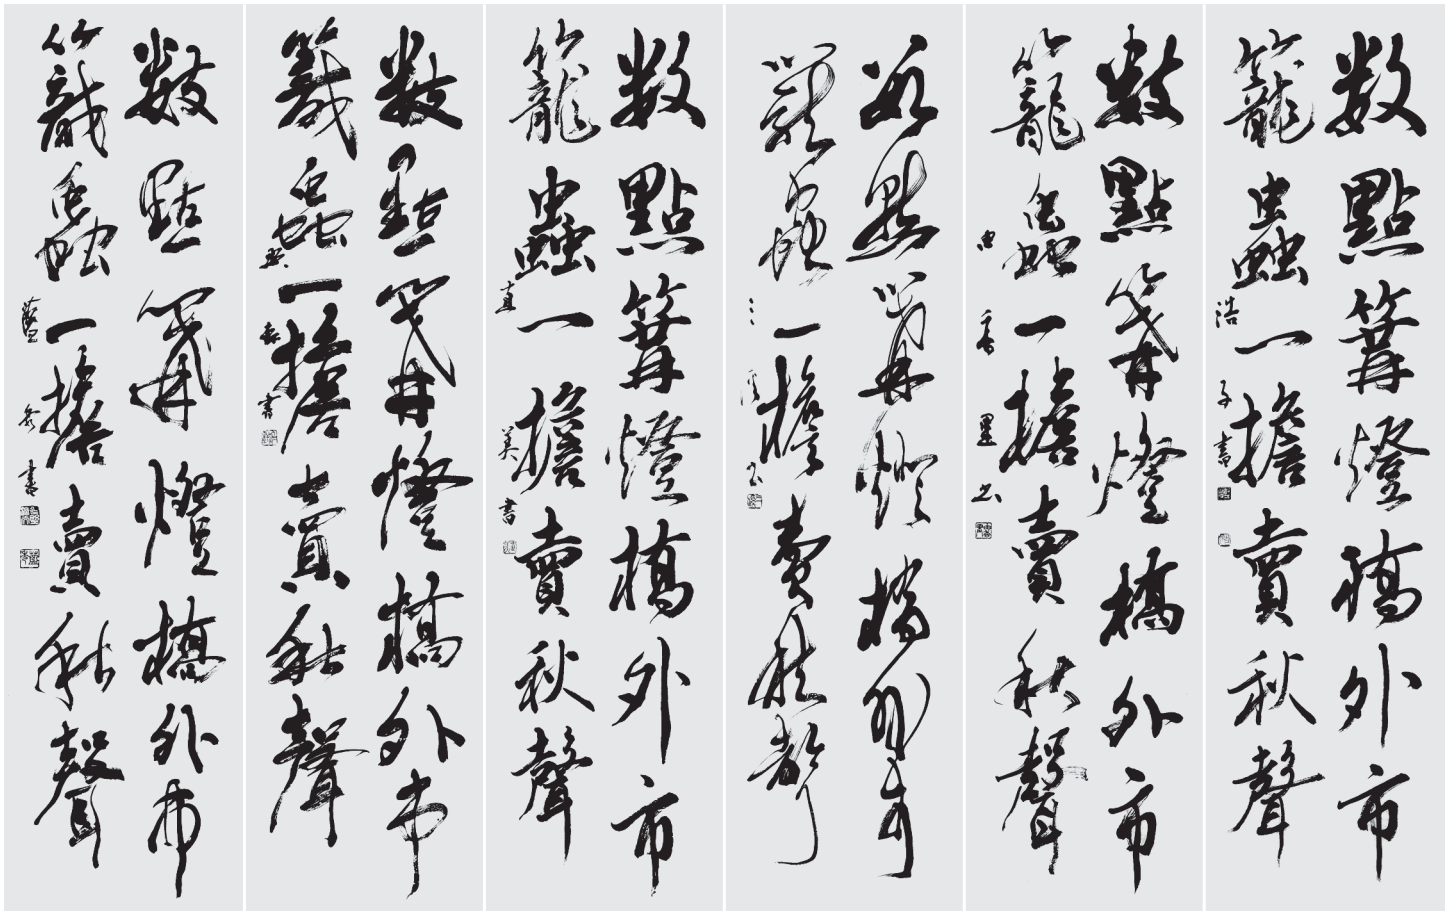 数點篝燈橋外市
籠蟲一擔賣秋聲
浩子書
数點篝燈橋外市
籠蟲一擔賣秋聲
数點篝燈橋外市
籠蟲一擔賣秋聲
直美書
数點篝燈橋外市
籠蟲一擔賣秋聲
数點篝燈橋外市
籠蟲一擔賣秋聲
書
数點篝燈橋外市
籠蟲一擔賣秋聲
書